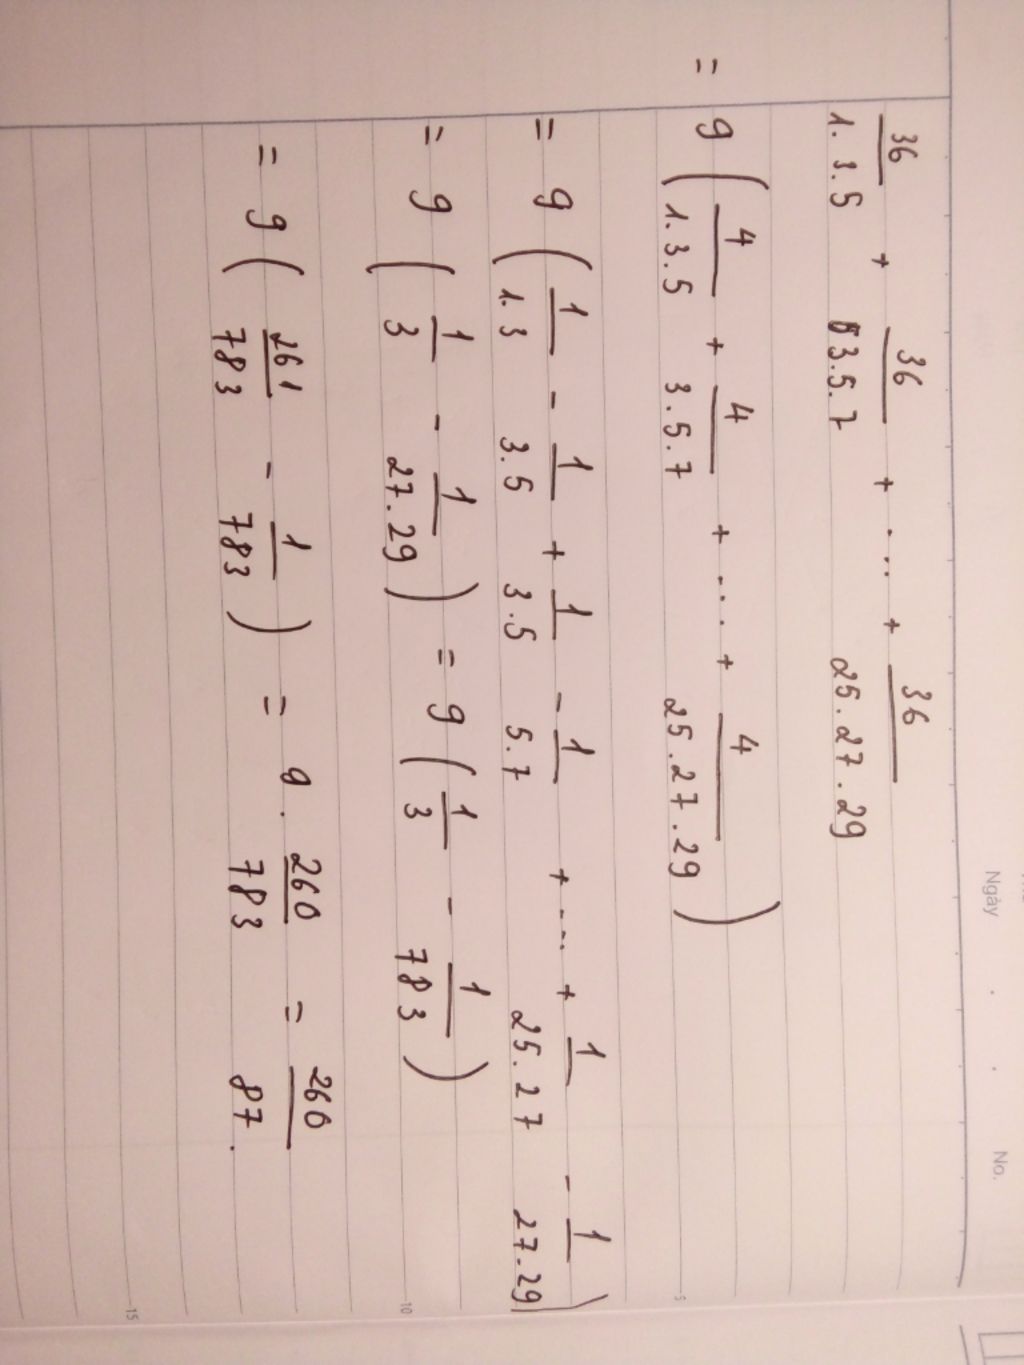 Ngày . . No.
36/1.3.5 + 36/3.5.7 + ... + 36/25.27.29
= 9 ( 4/1.3.5 + 4/3.5.7 + ... + 4/25.27.29 )
= 9 ( 1/1.3 - 1/3.5 + 1/3.5 - 1/5.7 + ... + 1/25.27 - 1/27.29 )
= 9 ( 1/3 - 1/27.29 ) = 9 ( 1/3 - 1/783 )
= 9 ( 261/783 - 1/783 ) = 9 . 260/783 = 260/87 .
5
10
15